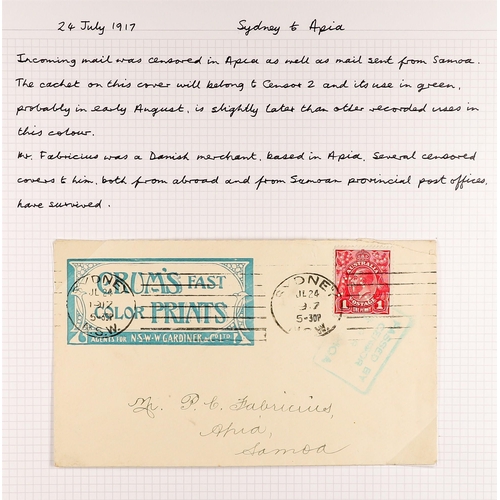 24 July 1917 Sydney to Apia
Incoming mail was censored in Apia as well as mail sent from Samoa.
The cachet on this cover will belong to Censor 2 and its use in green,
probably in early August, is slightly later than other recorded uses in
this colour.
Mr. Fabricius was a Danish merchant, based in Apia. Several censored
covers to him, both from abroad and from Samoan provincial post offices,
have survived.
CRUM'S FAST
COLOR PRINTS
AGENTS FOR N.S.W. W. GARDINER & CO LTD
SYDNEY
JL 24
1917
5-30P
N.S.W.
SYDNEY
JL 24
5-30P
N.S.W.
AUSTRALIA
1 POSTAGE 1
ONE PENNY
PASSED BY
CENSOR
APIA
Mr. P. C. Fabricius,
Apia,
Samoa